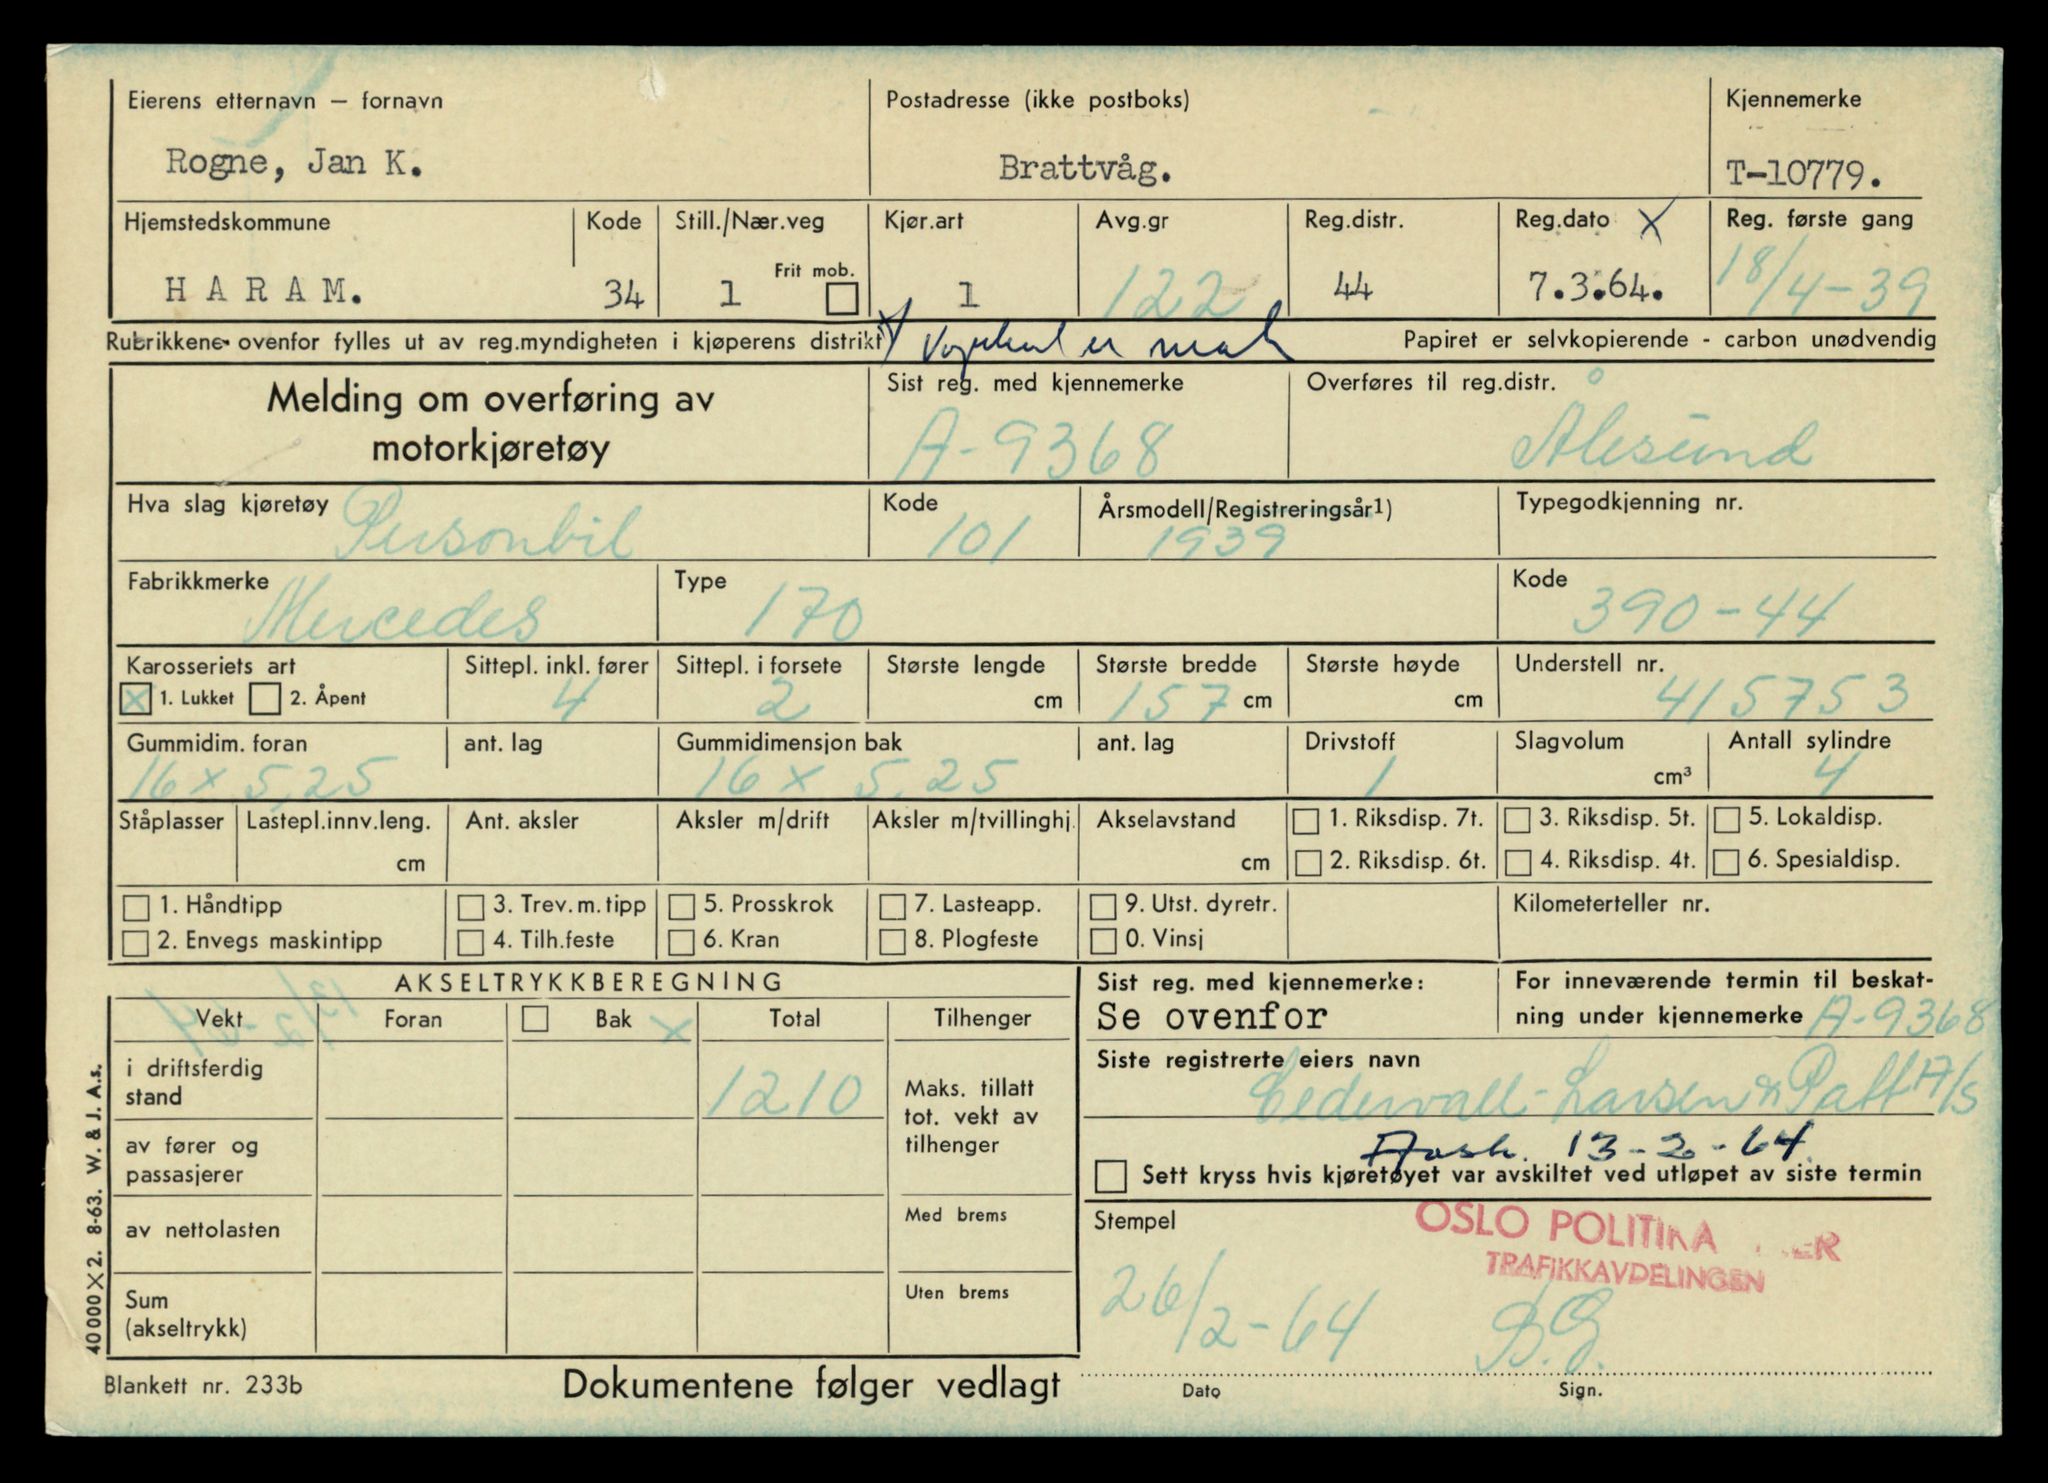 Eierens etternavn – fornavn
Rogne, Jan K.
Postadresse (ikke postboks)
Brattvåg.
Kjennemerke
T-10779.
Hjemstedskommune
HARAM.
Kode
34
Still./Nær.veg
1
Frit mob.
Kjør.art
1
Avg.gr
122
Reg.distr.
44
Reg.dato X
7.3.64.
Reg. første gang
18/4-39
Rubrikkene ovenfor fylles ut av reg.myndigheten i kjøperens distrikt
er
Papiret er selvkopierende - carbon unødvendig
Melding om overføring av
motorkjøretøy
Sist reg. med kjennemerke
A-9368
Overføres til reg.distr.
Ålesund
Hva slag kjøretøy
Personbil
Kode
101
Årsmodell/Registreringsår1)
1939
Typegodkjenning nr.
Fabrikkmerke
Mercedes
Type
170
Kode
390-44
Karosseriets art
X 1. Lukket 2. Åpent
Sittepl. inkl. fører
4
Sittepl. i forsete
2
Største lengde
cm
Største bredde
157 cm
Største høyde
cm
Understell nr.
415753
Gummidim. foran
16 x 5,25
ant. lag
Gummidimensjon bak
16 x 5,25
ant. lag
Drivstoff
1
Slagvolum
cm³
Antall sylindre
4
Ståplasser
Lastepl.innv.leng.
cm
Ant. aksler
Aksler m/drift
Aksler m/tvillinghj.
Akselavstand
cm
1. Riksdisp. 7t.
2. Riksdisp. 6t.
3. Riksdisp. 5t.
4. Riksdisp. 4t.
5. Lokaldisp.
6. Spesialdisp.
1. Håndtipp
2. Envegs maskintipp
3. Trev. m. tipp
4. Tilh.feste
5. Prosskrok
6. Kran
7. Lasteapp.
8. Plogfeste
9. Utst. dyretr.
0. Vinsj
Kilometerteller nr.
AKSELTRYKKBEREGNING
Vekt
Foran
Bak x
Total
Tilhenger
i driftsferdig
stand
1210
av fører og
passasjerer
av nettolasten
Sum
(akseltrykk)
Maks. tillatt
tot. vekt av
tilhenger
Med brems
Uten brems
Sist reg. med kjennemerke:
Se ovenfor
For inneværende termin til beskat-
ning under kjennemerke A-9368
Siste registrerte eiers navn
Cedervall-Larsen & A/S
13-2-64
Sett kryss hvis kjøretøyet var avskiltet ved utløpet av siste termin
Stempel
OSLO
TRAFIKKAVDELINGEN
26/2-64
Dato
Sign.
40 000 X 2. 8-63. W. & J. A.s.
Blankett nr. 233b
Dokumentene følger vedlagt